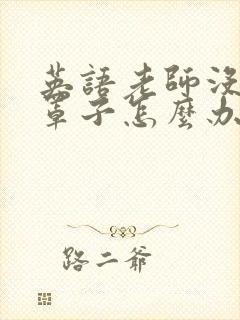 英語老師沒
罩子怎麼办
路二爺